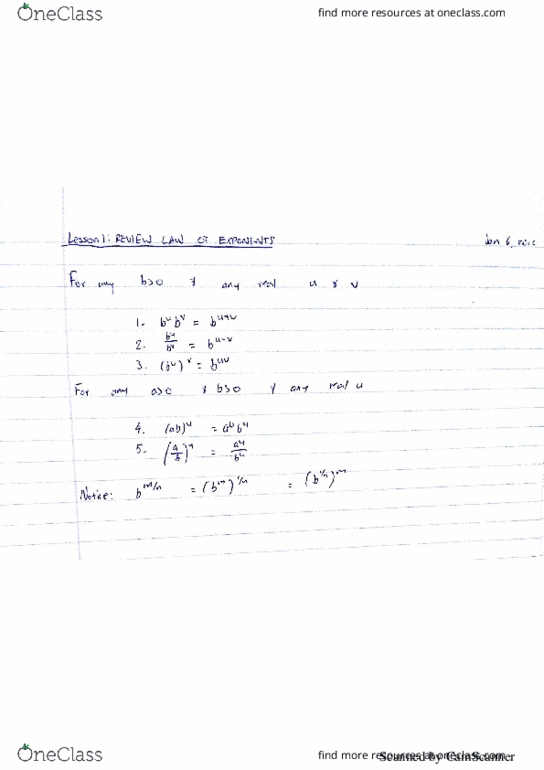 OneClass
find more resources at oneclass.com
Lesson 1: REVIEW LAW OF EXPONENTS Jan 6,
For any b>0 & any real u & v
1. bᵘ bᵛ = bᵘ⁺ᵛ
2. bᵘ/bᵛ = bᵘ⁻ᵛ
3. (bᵘ)ᵛ = bᵘᵛ
For any a>0 & b>0 & any real u
4. (ab)ᵘ = aᵘbᵘ
5. (a/b)ᵘ = aᵘ/bᵘ
Notice: b^(m/n) = (b^m)^(1/n) = (b^(1/n))^m
OneClass
find more resources at oneclass.com
Scanned by CamScanner